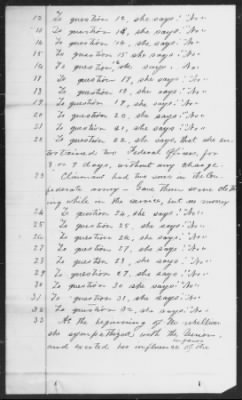 12 To question 12, she says: "No"
13 To question 14, she says, "No"
14 To question 14, she says: "No"
15 To question 15 she says: "No"
16 To question, 16 she says. "No"
17 To question 17, she says: "No"
18 To question, 18, she says: "No"
19 To question 19, she says: "No"
20 To question 20, she says: "No"
21 To question 21, she says: "No"
22 To question 22, she says, that she en-
tertained a Federal Officer for
8 or 9 days, without any charge.
23 Claimant had two sons in the Con-
federate army - Gave them some clo thi
ng while in the service, but no money
24 To question 24, she says: "No"
25 To question 25, she says: "No"
26 To question 26, she says: "No"
27 To question 27, she says: "No"
28 To question 28, she says: "No"
29 To question 29, she says: "No"
30 To question 30 she says: "No"
31 To question 31, she says: "No"
32 To question 32, she says: "No"
33 At the beginning of the rebellion
she sympathized with the Union
and exerted her influence in favor of the